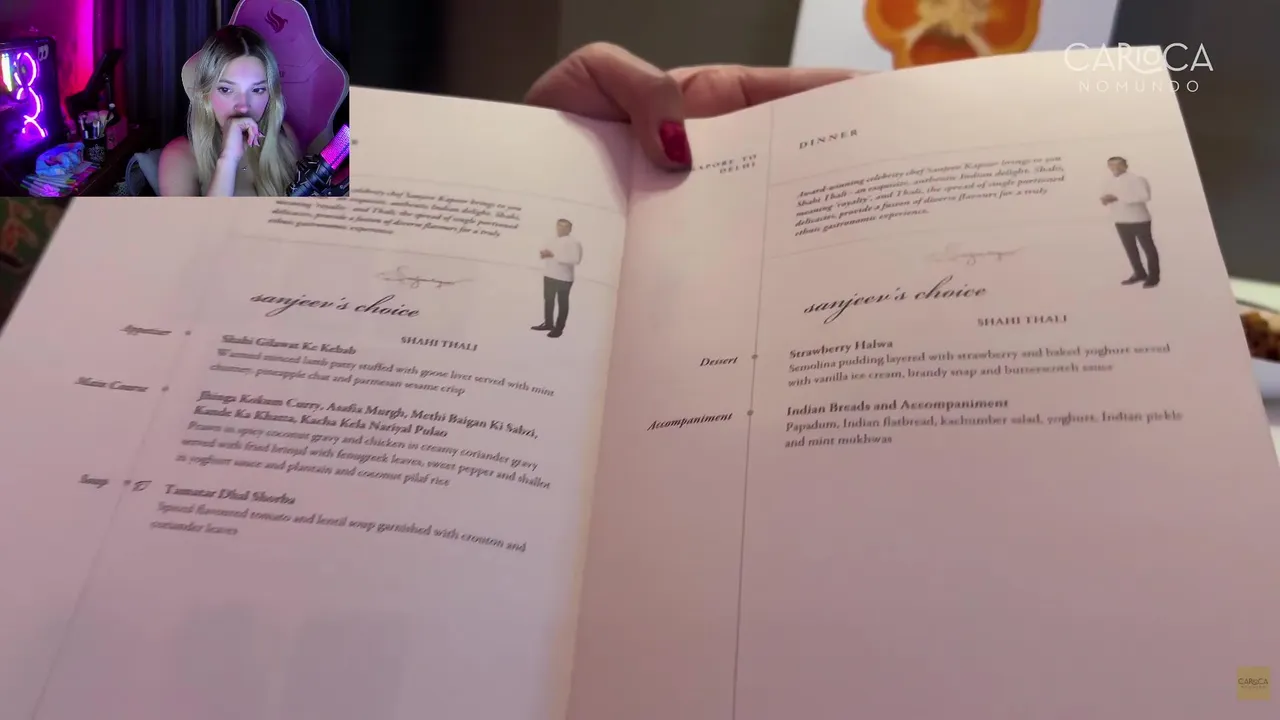 CARIOCA
NOMUNDO
celebrity chef Sanjeev Kapoor brings to you
exquisite, authentic Indian delight. Shahi,
meaning 'royalty', and Thali, the spread of single portioned
delicacies, provide a fusion of diverse flavours for a truly
ethnic gastronomic experience.
sanjeev's choice
SHAHI THALI
Appetizer
Shahi Gilawat Ke Kebab
Warmed minced lamb patty stuffed with goose liver served with mint
chutney, pineapple chat and parmesan sesame crisp
Main Course
Jhinga Kokum Curry, Asafia Murgh, Methi Baigan Ki Sabzi,
Kande Ka Khatta, Kacha Kela Nariyal Pulao
Prawn in spicy coconut gravy and chicken in creamy coriander gravy
served with fried brinjal with fenugreek leaves, sweet pepper and shallot
in yoghurt sauce and plantain and coconut pilaf rice
Soup
Tamatar Dhal Shorba
Spiced flavoured tomato and lentil soup garnished with crouton and
coriander leaves
APORE TO
DELHI
DINNER
Award-winning celebrity chef Sanjeev Kapoor brings to you
Shahi Thali - an exquisite, authentic Indian delight. Shahi,
meaning 'royalty', and Thali, the spread of single portioned
delicacies, provide a fusion of diverse flavours for a truly
ethnic gastronomic experience.
sanjeev's choice
SHAHI THALI
Dessert
Strawberry Halwa
Semolina pudding layered with strawberry and baked yoghurt served
with vanilla ice cream, brandy snap and butterscotch sauce
Accompaniment
Indian Breads and Accompaniment
Papadum, Indian flatbread, kachumber salad, yoghurt, Indian pickle
and mint mukhwas
CARIOCA